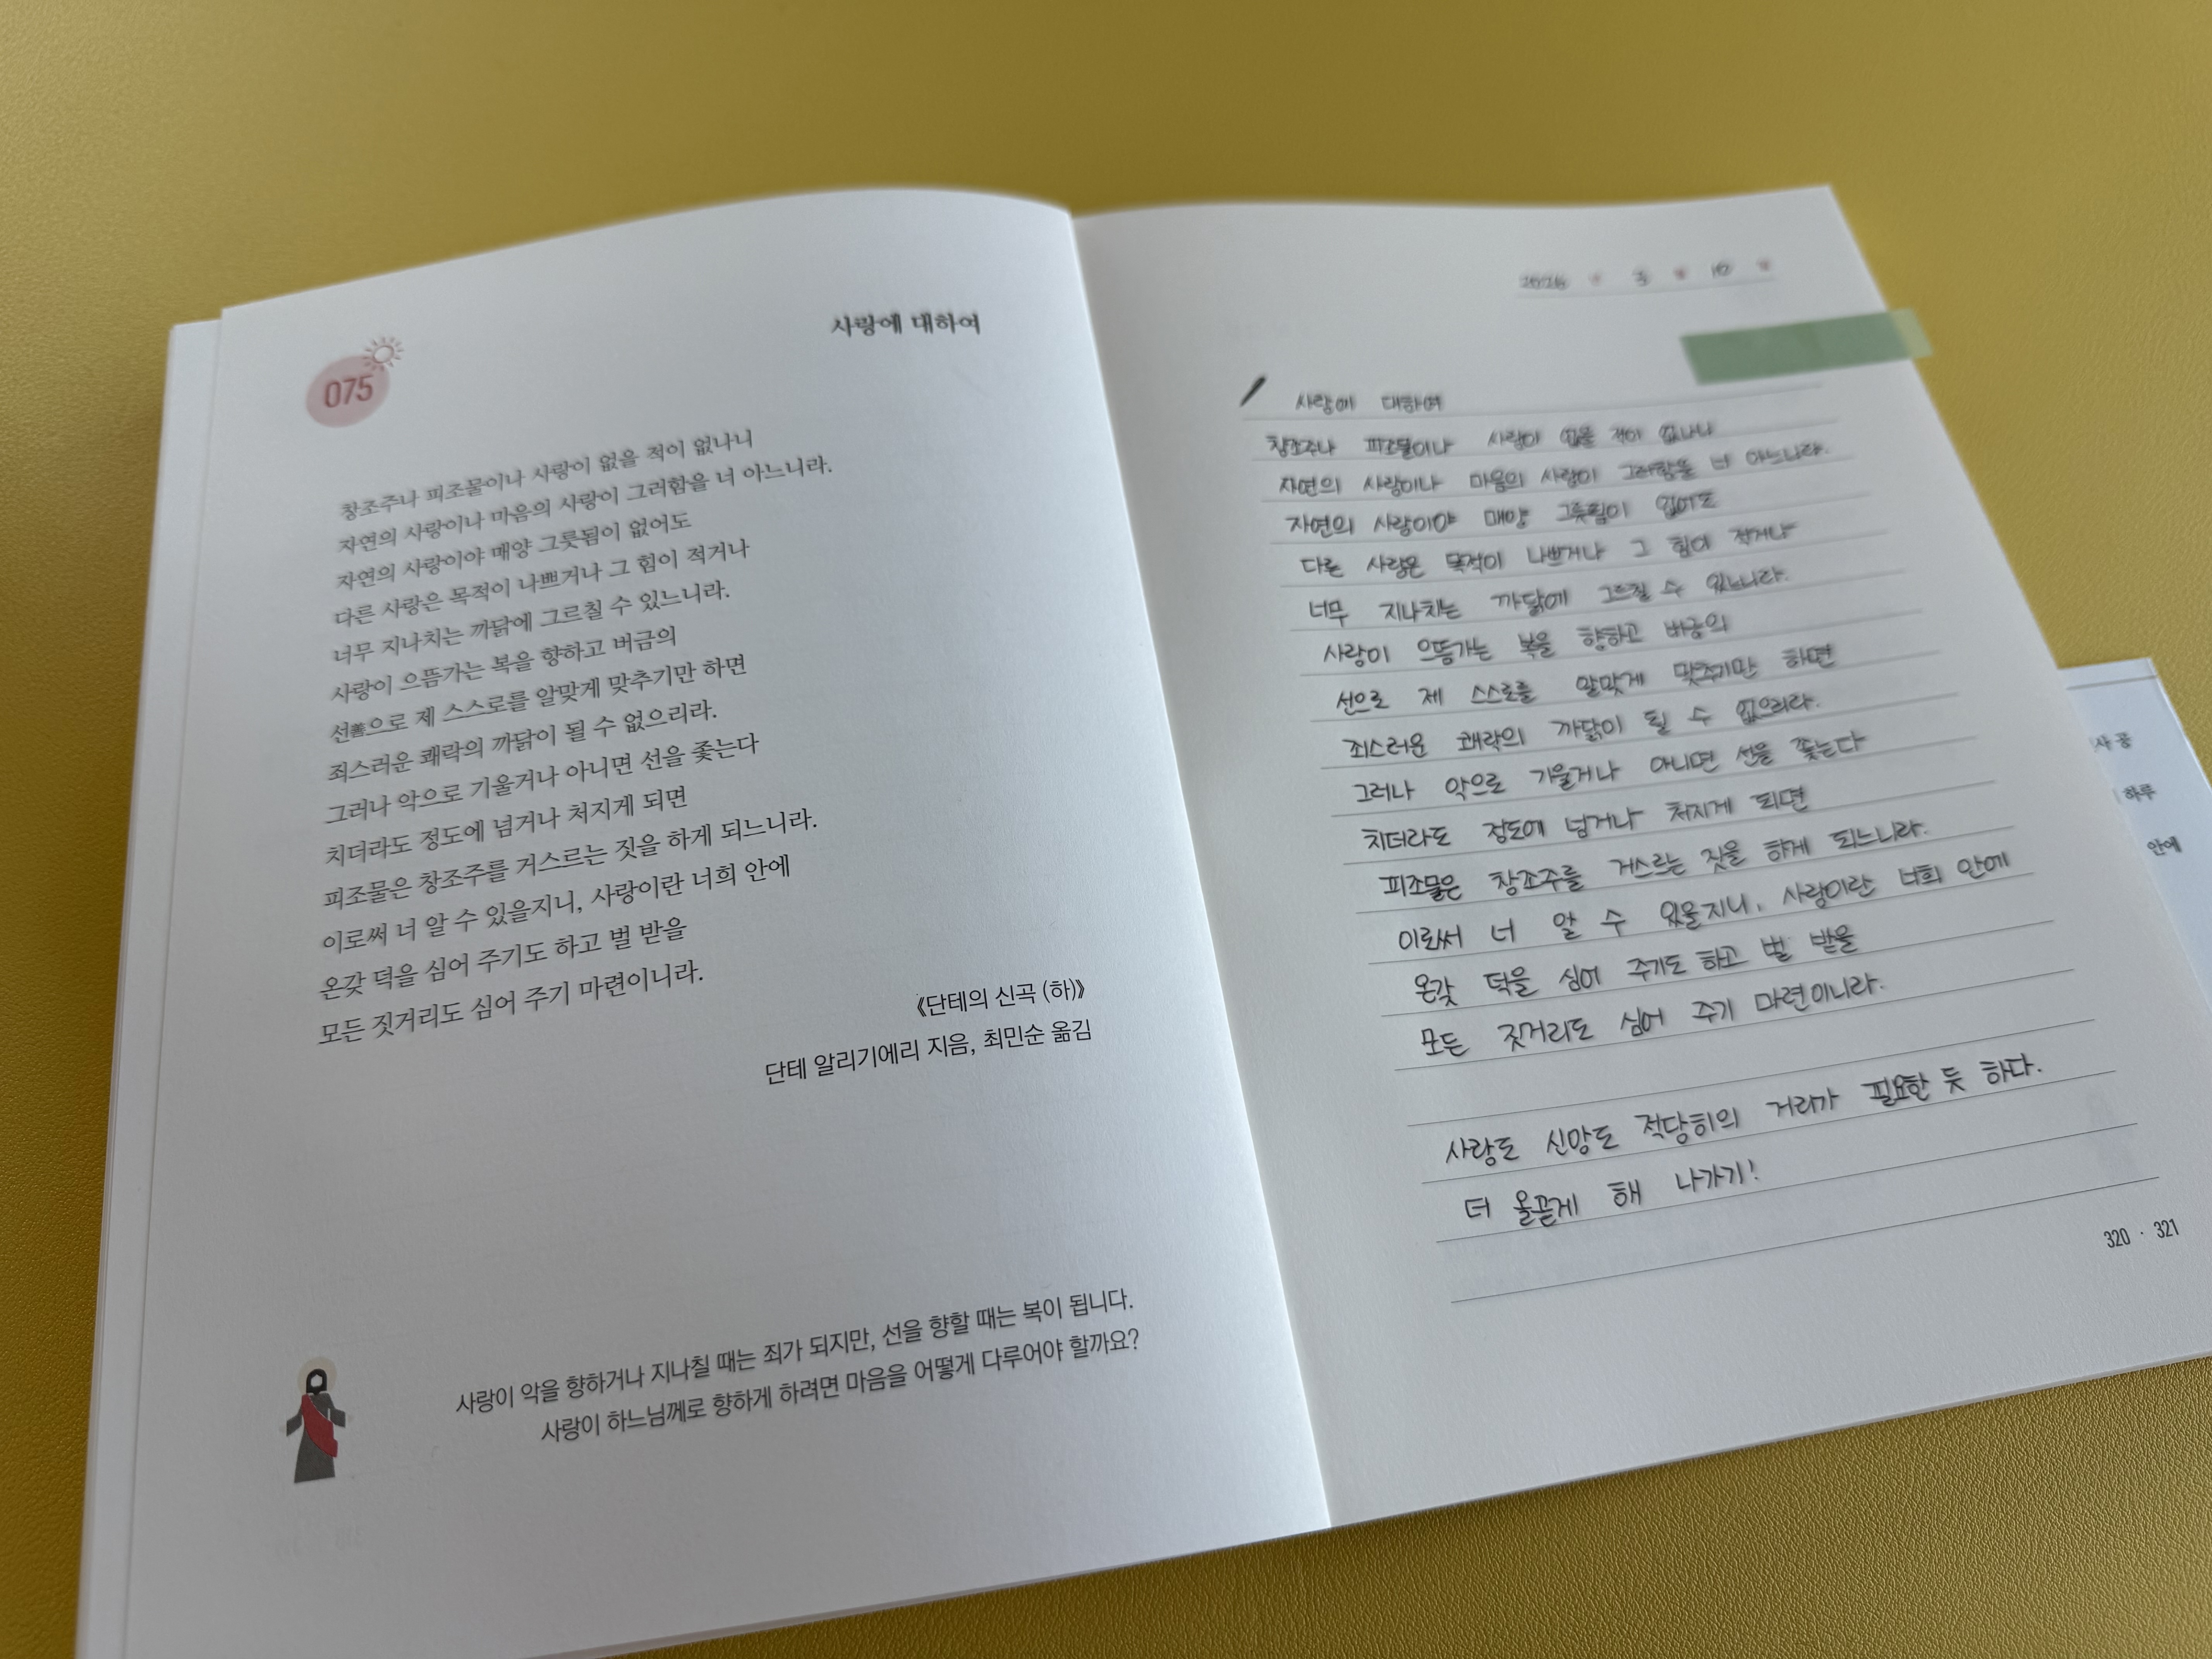 075
사랑에 대하여
창조주나 피조물이나 사랑이 없을 적이 없나니
자연의 사랑이나 마음의 사랑이 그러함을 너 아느니라.
자연의 사랑이야 매양 그릇됨이 없어도
다른 사랑은 목적이 나쁘거나 그 힘이 적거나
너무 지나치는 까닭에 그르칠 수 있느니라.
사랑이 으뜸가는 복을 향하고 버금의
선善으로 제 스스로를 알맞게 맞추기만 하면
죄스러운 쾌락의 까닭이 될 수 없으리라.
그러나 악으로 기울거나 아니면 선을 좇는다
치더라도 정도에 넘거나 처지게 되면
피조물은 창조주를 거스르는 짓을 하게 되느니라.
이로써 너 알 수 있을지니, 사랑이란 너희 안에
온갖 덕을 심어 주기도 하고 벌 받을
모든 짓거리도 심어 주기 마련이니라.
《단테의 신곡 (하)》
단테 알리기에리 지음, 최민순 옮김
사랑이 악을 향하거나 지나칠 때는 죄가 되지만, 선을 향할 때는 복이 됩니다.
사랑이 하느님께로 향하게 하려면 마음을 어떻게 다루어야 할까요?
2026
사랑에 대하여
창조주나 피조물이나 사랑이 없을 적이 없나니
자연의 사랑이나 마음의 사랑이 그러함을 너 아느니라.
자연의 사랑이야 매양 그릇됨이 없어도
다른 사랑은 목적이 나쁘거나 그 힘이 적거나
너무 지나치는 까닭에 그르칠 수 있느니라.
사랑이 으뜸가는 복을 향하고 버금의
선으로 제 스스로를 알맞게 맞추기만 하면
죄스러운 쾌락의 까닭이 될 수 없으리라.
그러나 악으로 기울거나 아니면 선을 좇는다
치더라도 정도에 넘거나 처지게 되면
피조물은 창조주를 거스르는 짓을 하게 되느니라.
이로써 너 알 수 있을지니, 사랑이란 너희 안에
온갖 덕을 심어 주기도 하고 벌 받을
모든 짓거리도 심어 주기 마련이니라.
사랑도 신앙도 적당히의 거리가 필요한 듯 하다.
더 올곧게 해 나가기!
320 · 321
사공
하루
안에